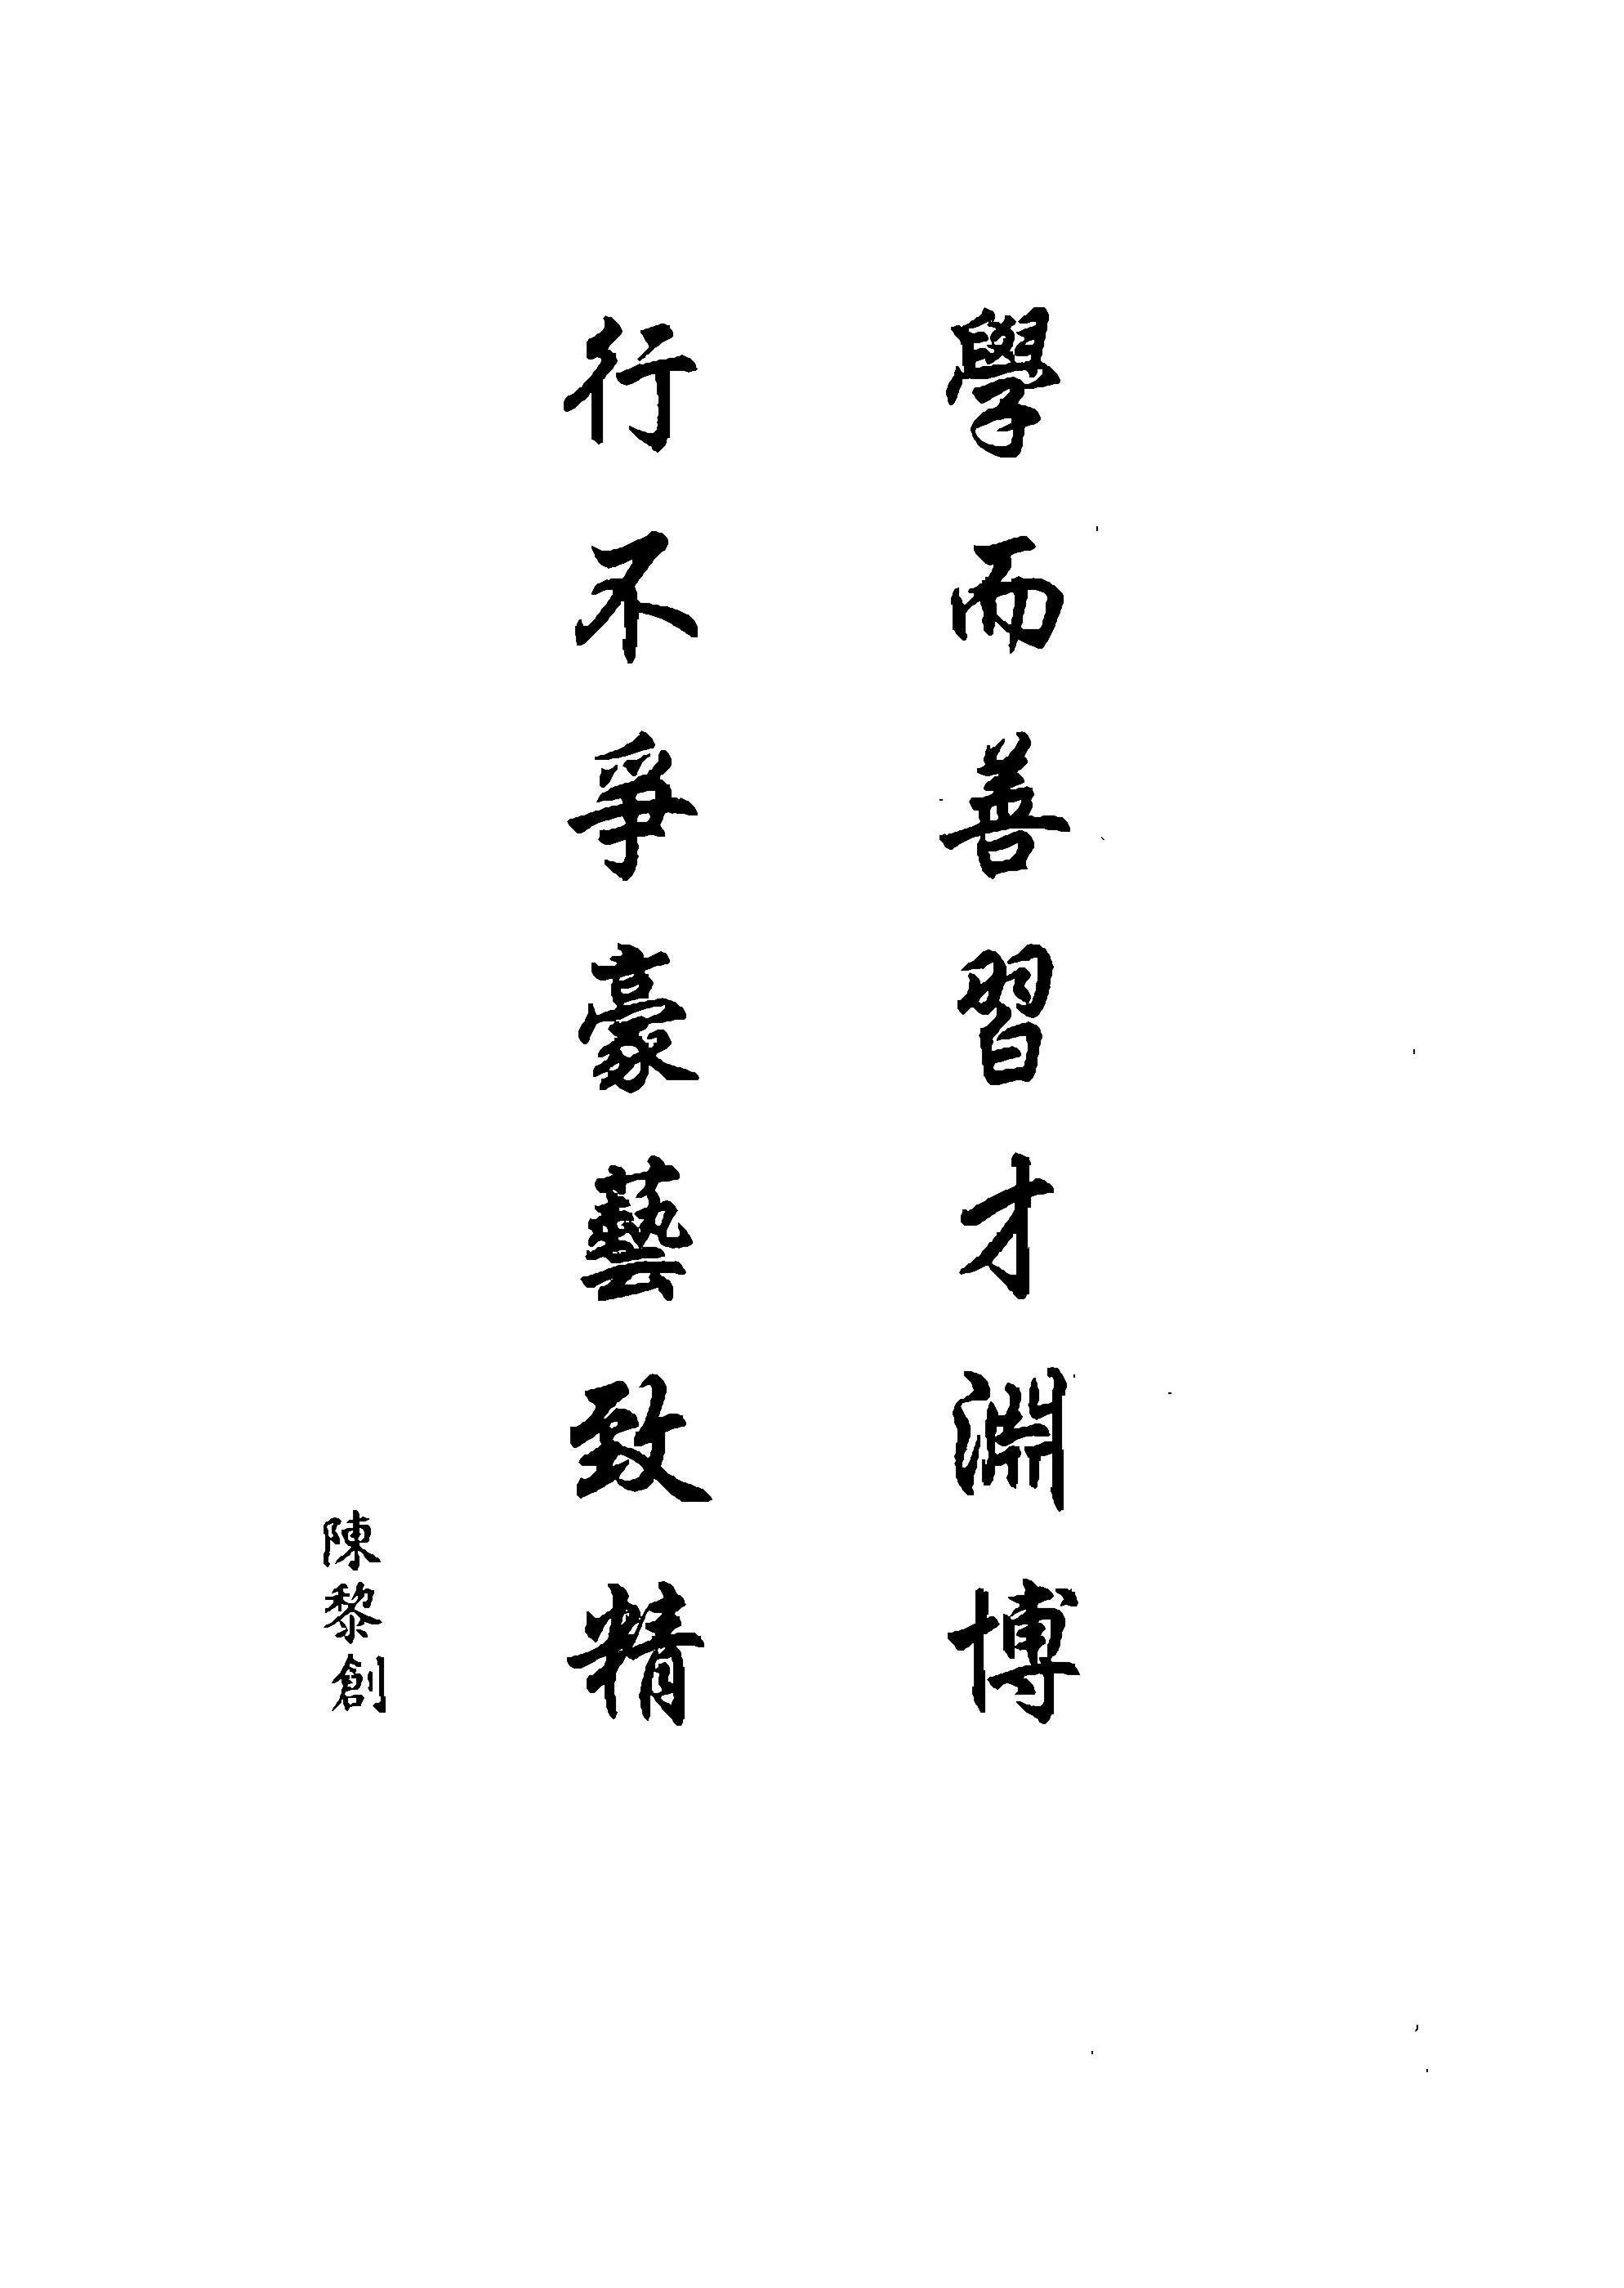 學而善習才淵博
行不爭豪藝致精
陳黎創